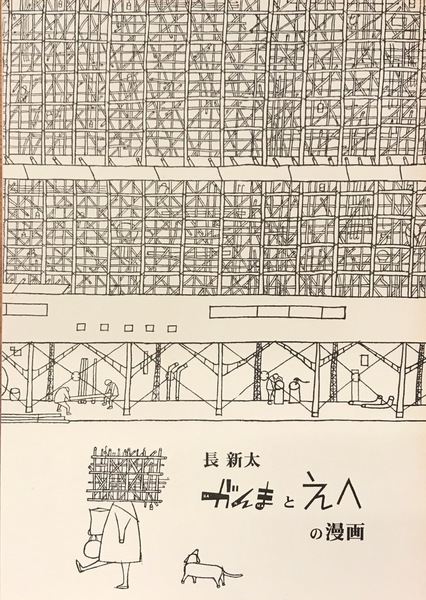 長 新太
がんまとえへ
の漫画